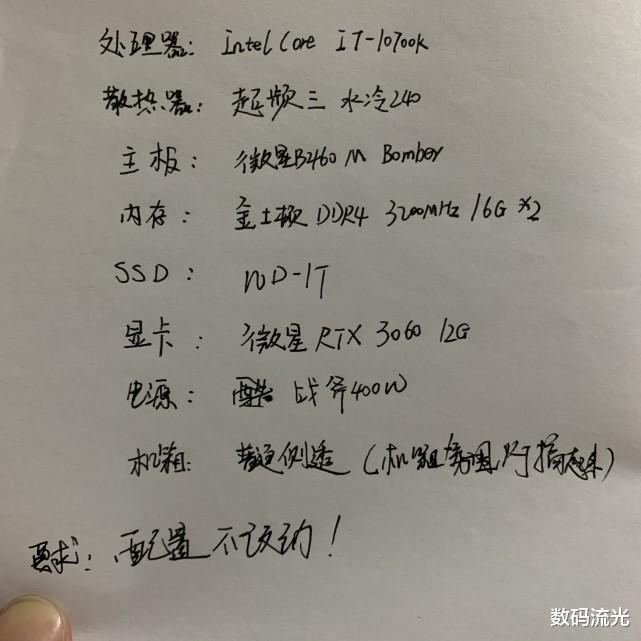 处理器: intel Core i7-10700k
散热器: 超频三 水冷240
主板: 微星B460M Bomber
内存: 金士顿 DDR4 3200MHz 16G×2
SSD: WD-1T
显卡: 微星 RTX 3060 12G
电源: 战斧400W
机箱: 普通侧透 (机箱氛围灯搞起来)
要求: 配置不改动!
数码流光